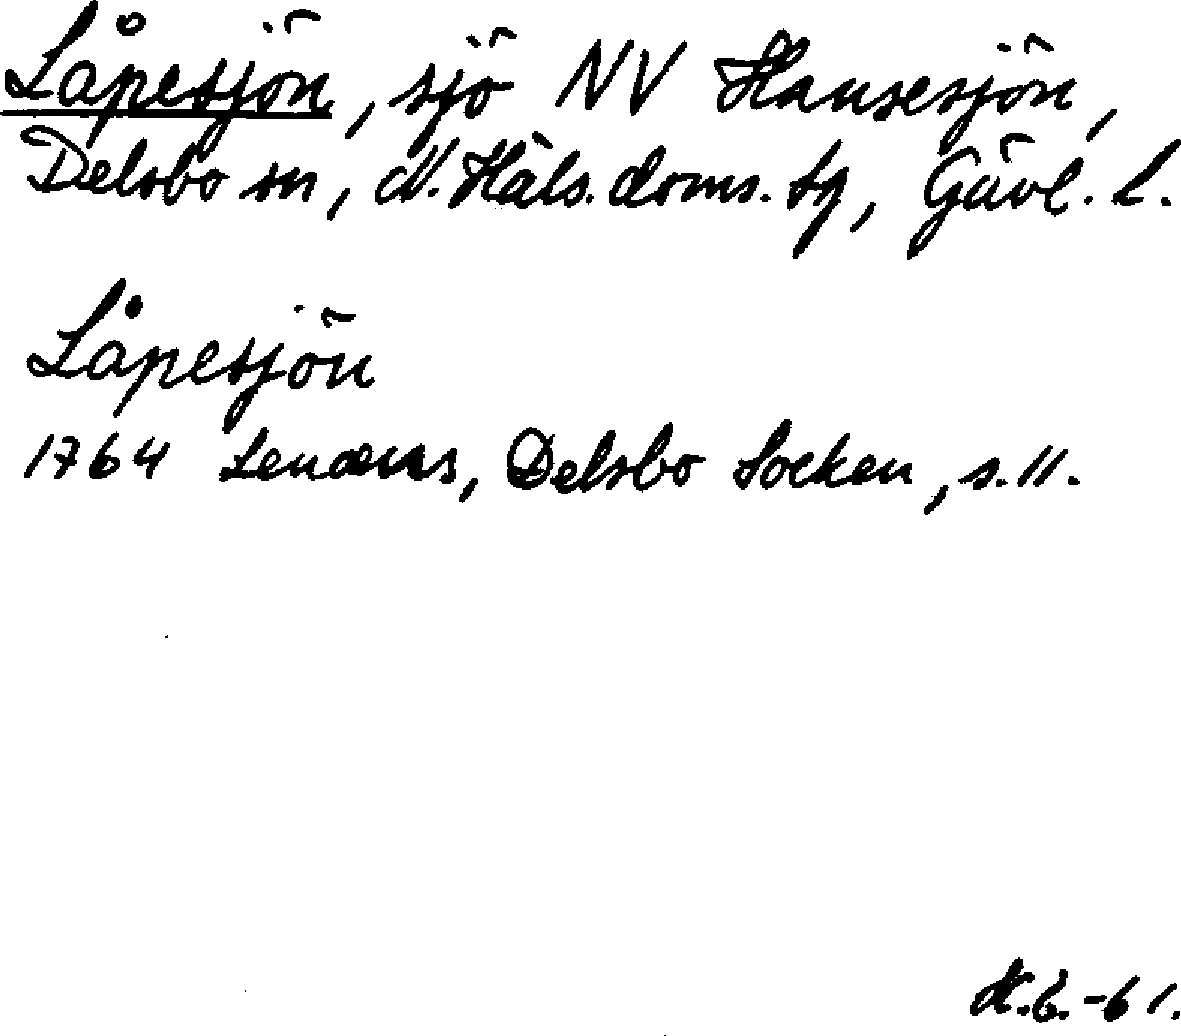 Låpesjön, sjö NV Hansesjön,
Delsbo sn, N. Häls. doms. tg, Gävl. l.
Låpesjön
1764 Lenæus, Delsbo Socken, s. 11.
-61.